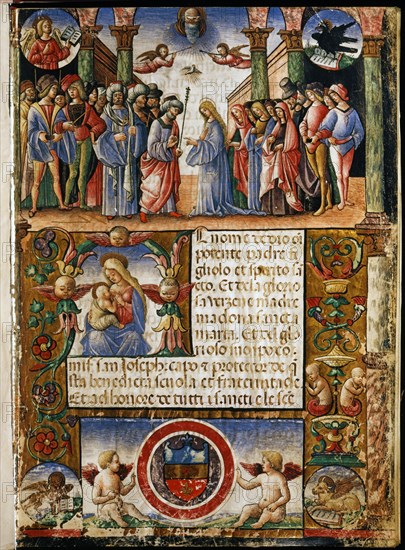 l nome de dio oi
potente padre fi
gliolo et spirito sa
cto. Et de la glorio
sa verzene madre
madona sancta
maria. Et del gl
riolo
mis. san Joseph: capo et protector de q
sta benedecta scuola et fraternitade
Et a lhonore de tutti i sancti